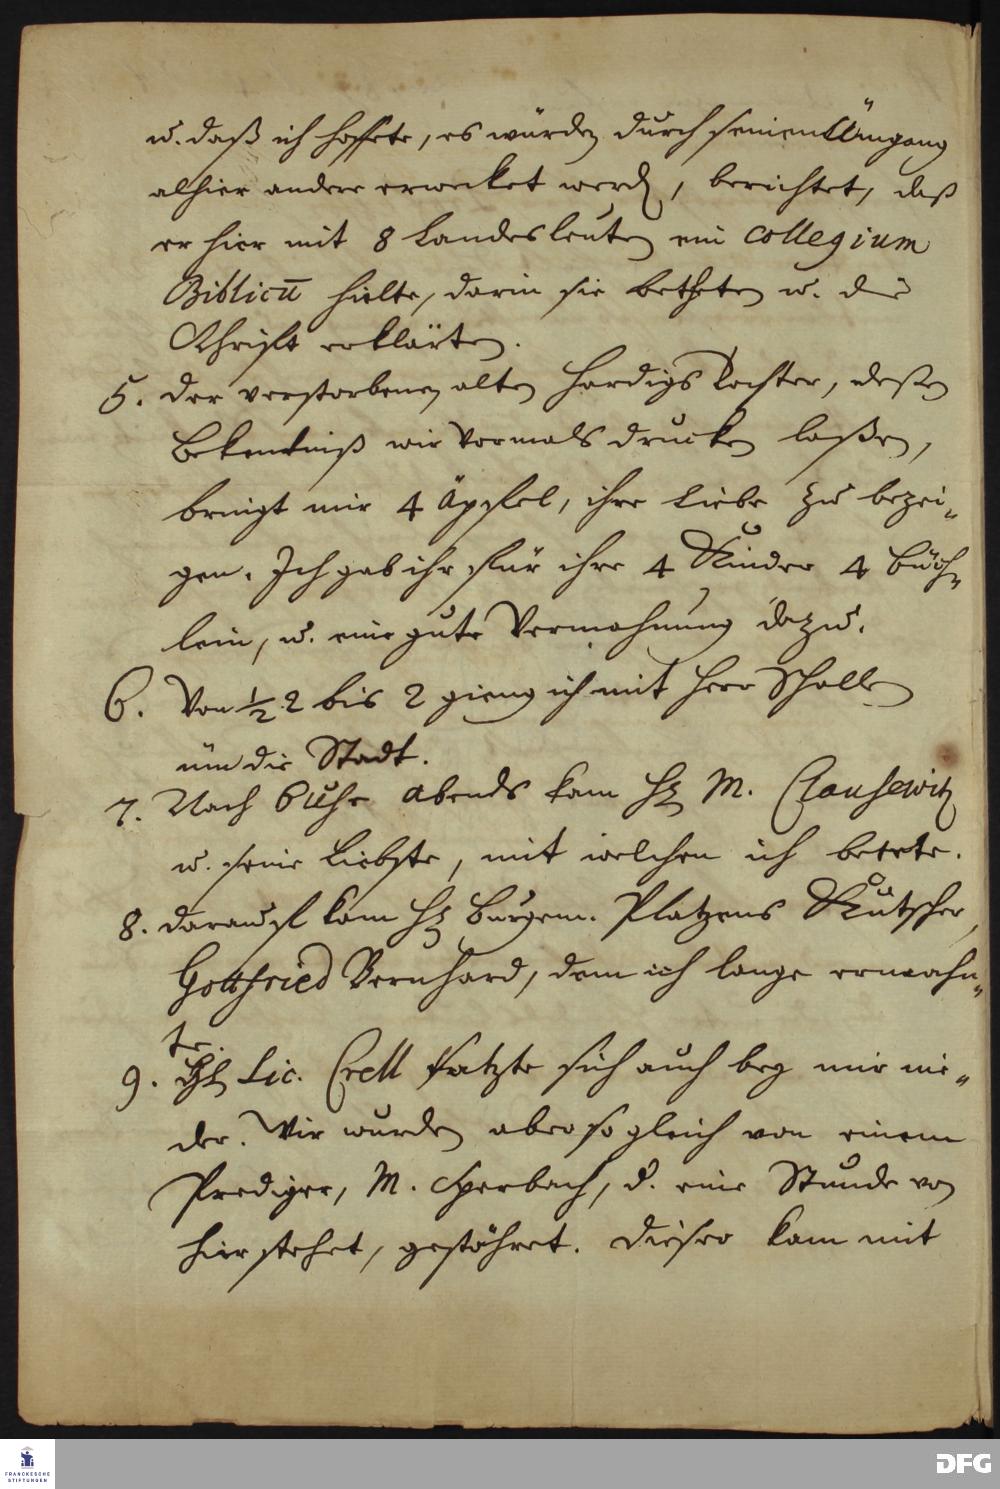 u. daß ich hoffete, es würden durch seinen Umgang
alhier andere erwecket werden, berichtet, daß
er hier mit 8 Landesleuten ein Collegium
Biblicū hielte, darin sie betheten u. die
Schrifft erklärten.
5. Der verstorbenen alten Hardigs Tochter, deßen
Bekentniß wir vormals drucken laßen,
bringt mir 4 Äpffel, ihre Liebe zu bezei„
gen. Ich gab ihr für ihre 4 Kinder 4 Büch„
lein, u. eine gute Vermahnung dazu.
6. Von ½ 2 bis 2 gieng ich mit Herr Schallen
üm die Stadt.
7. Nach 6 Uhr abends kam H. M. Clausewitz
u. seine Liebste, mit welchen ich betete.
8. darauf kam H. Bürgem. Platzens Kutscher,
Gottfried Bernhard, dem ich lange ermahn„
te.
9. H. Lic. Crell satzte sich auch bey mir nie„
der. Wir wurden aber so gleich von einem
Prediger, M. Sperbach, d. eine Stunde von
hier stehet, gestöhret. Dieser kam mit
FRANCKESCHE
STIFTUNGEN
DFG